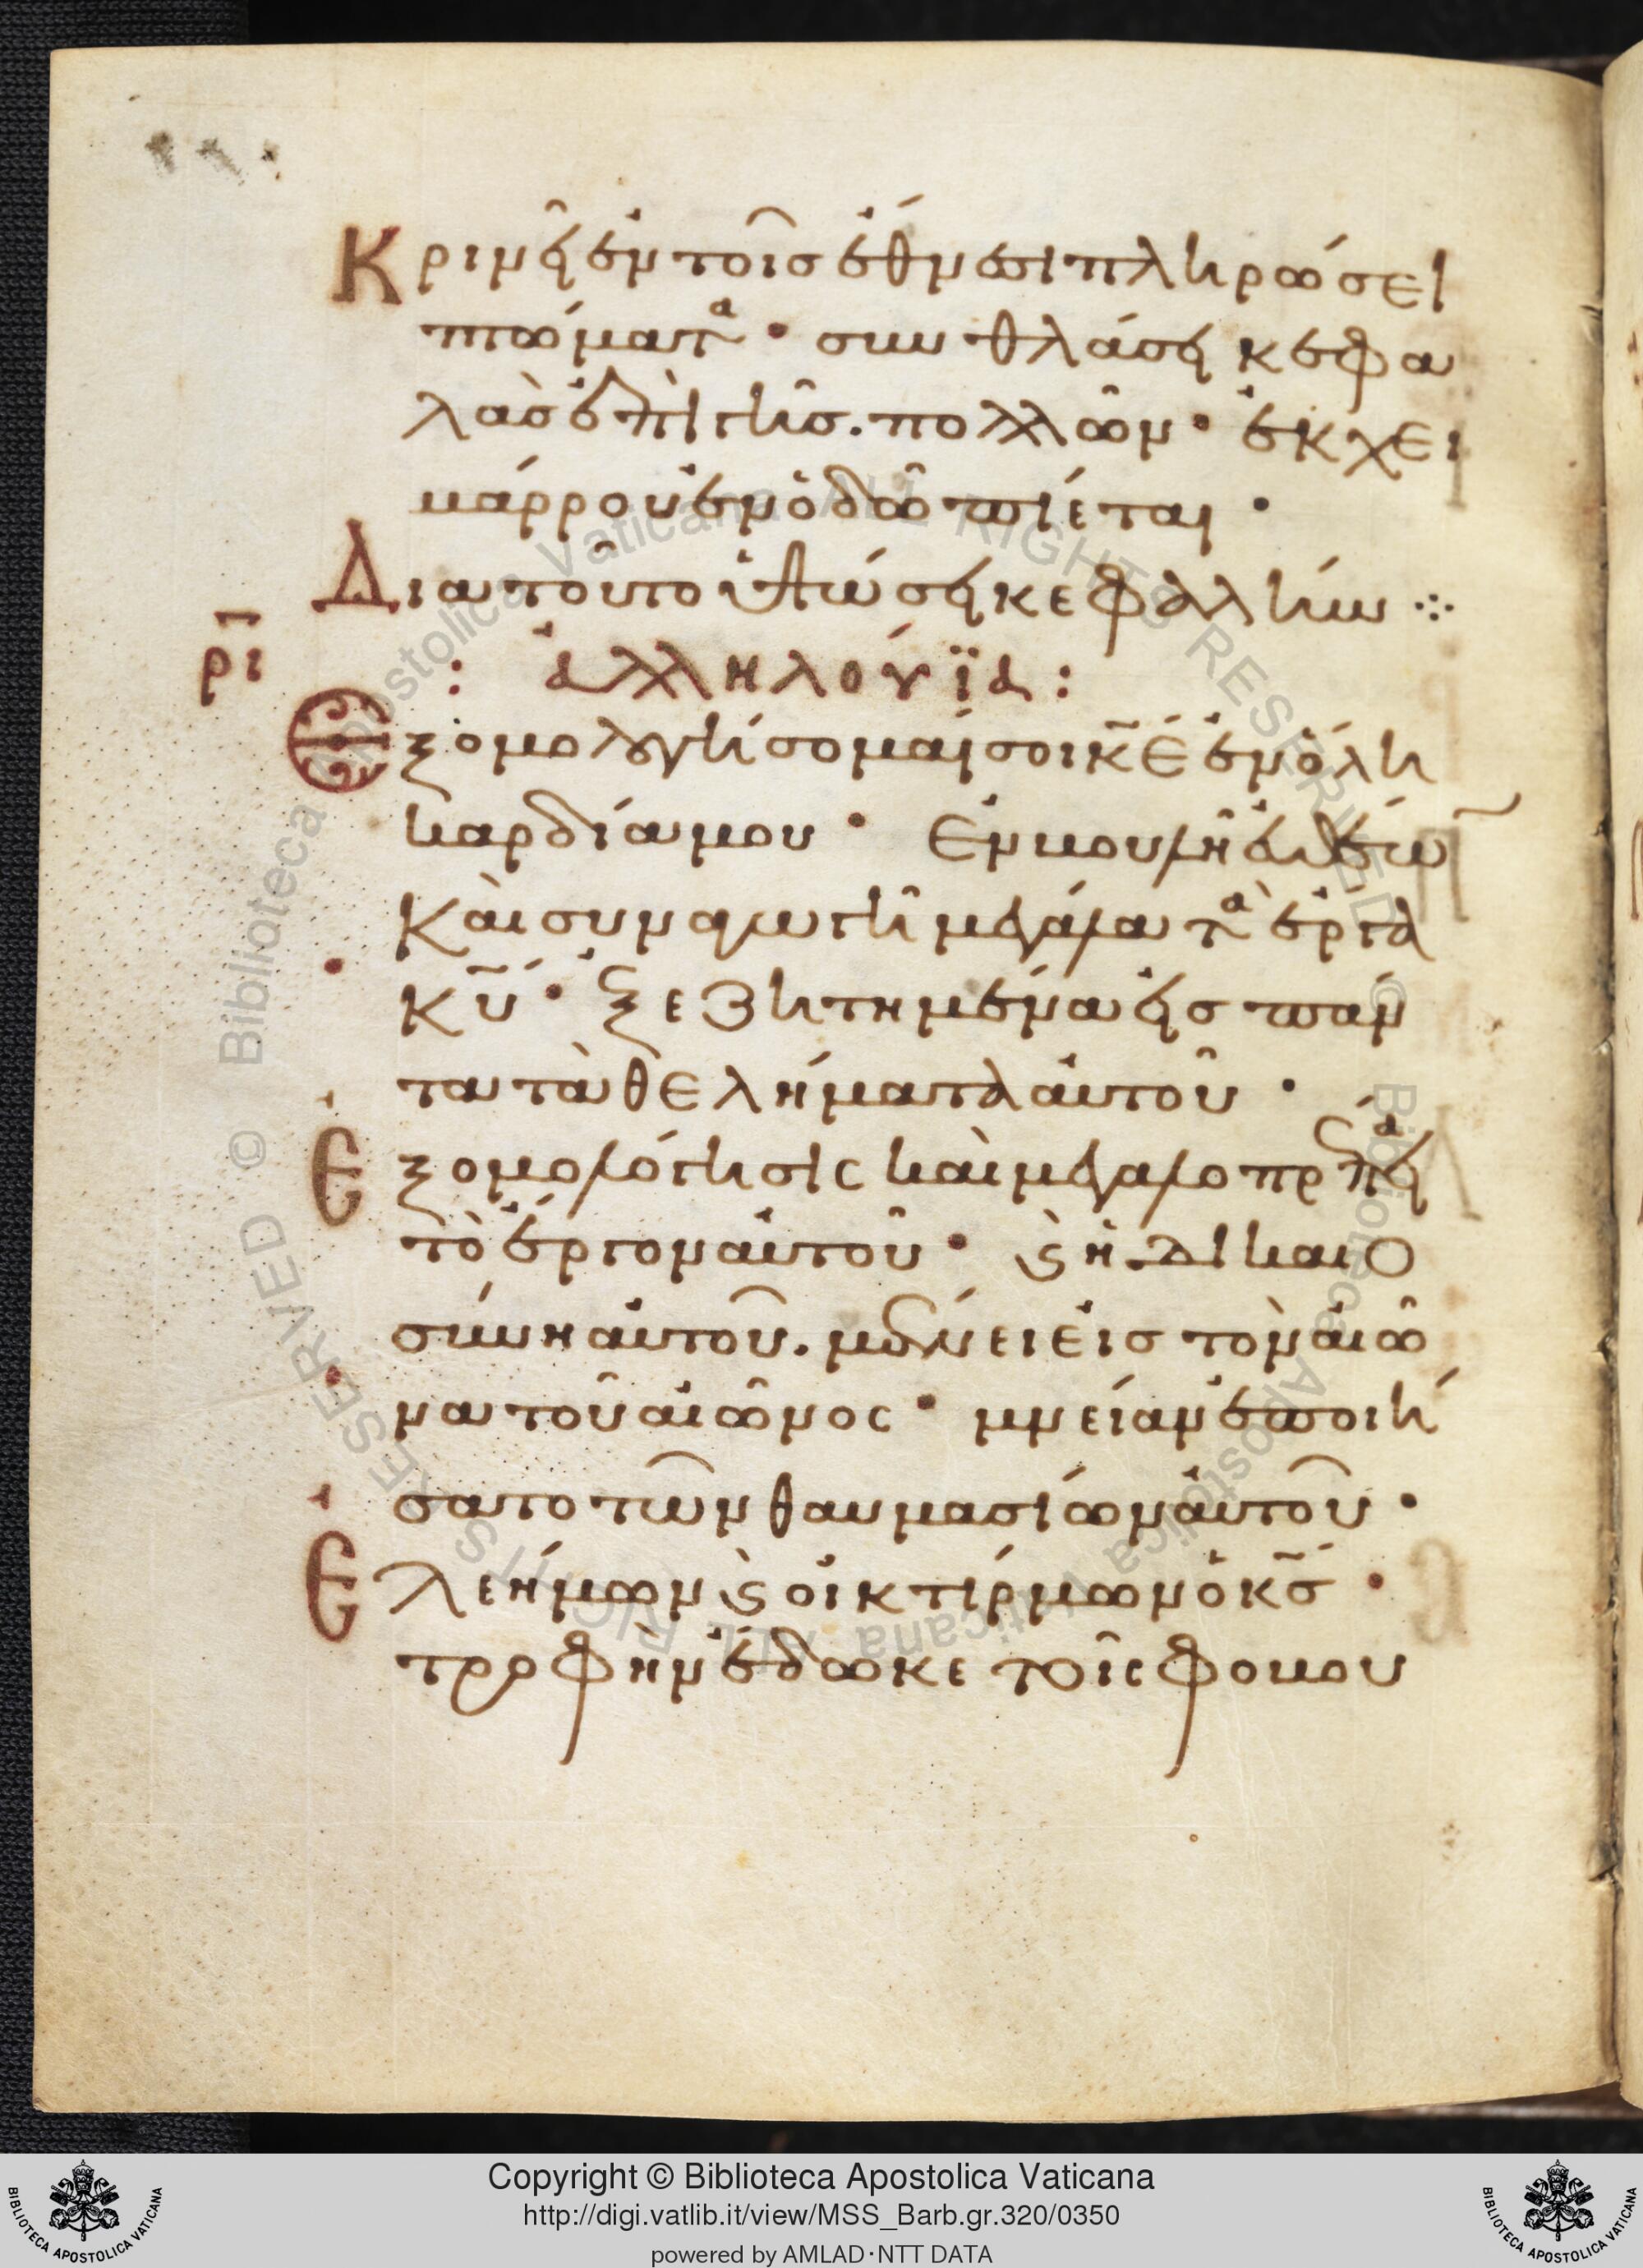 Κρινεῖ ἐν τοῖσ ἔθνεσι πληρώσει
πτώματα · συνθλάσει κεφα
λὰσ ἐπὶ γῆσ. πολλῶν · ἐκ χει
μάρρου ἐν ὁδῶ πίεται ·
Διατοῦτο ὑψώσει κεφαλήν ⁘
ρι : ἀλληλούϊα :
Ἐξομολογήσομαί σοι κε̄ ἐν ὅλη
καρδία μου · Ἐν βουλῆ εὐθέων
Καὶ συναγωγῆ μεγάλα τὰ ἔργα
κῡ · ἐξεζητημένα εἰς πάν
τα τὰ θελήματα αὐτοῦ ·
Ἐξομολόγησις καὶ μεγαλοπρέπεια
τὸ ἔργον αὐτοῦ · ϗ ἡ δικαιο
σύνη αὐτοῦ. μένει εἰσ τὸν αἰῶ
να τοῦ αἰῶνος · μνείαν ἐποιή
σατο τῶν θαυμασίων αὐτοῦ ·
Ἐλεήμων ϗ οἰκτίρμων ὁ κσ̄ ·
τροφὴν ἔδωκε τοῖς φοβου
© Biblioteca Apostolica Vaticana ALL RIGHTS RESERVED © Biblioteca Apostolica Vaticana ALL RIGHTS RESERVED
Copyright © Biblioteca Apostolica Vaticana
http://digi.vatlib.it/view/MSS_Barb.gr.320/0350
powered by AMLAD·NTT DATA
BIBLIOTECA APOSTOLICA VATICANA
BIBLIOTECA APOSTOLICA VATICANA